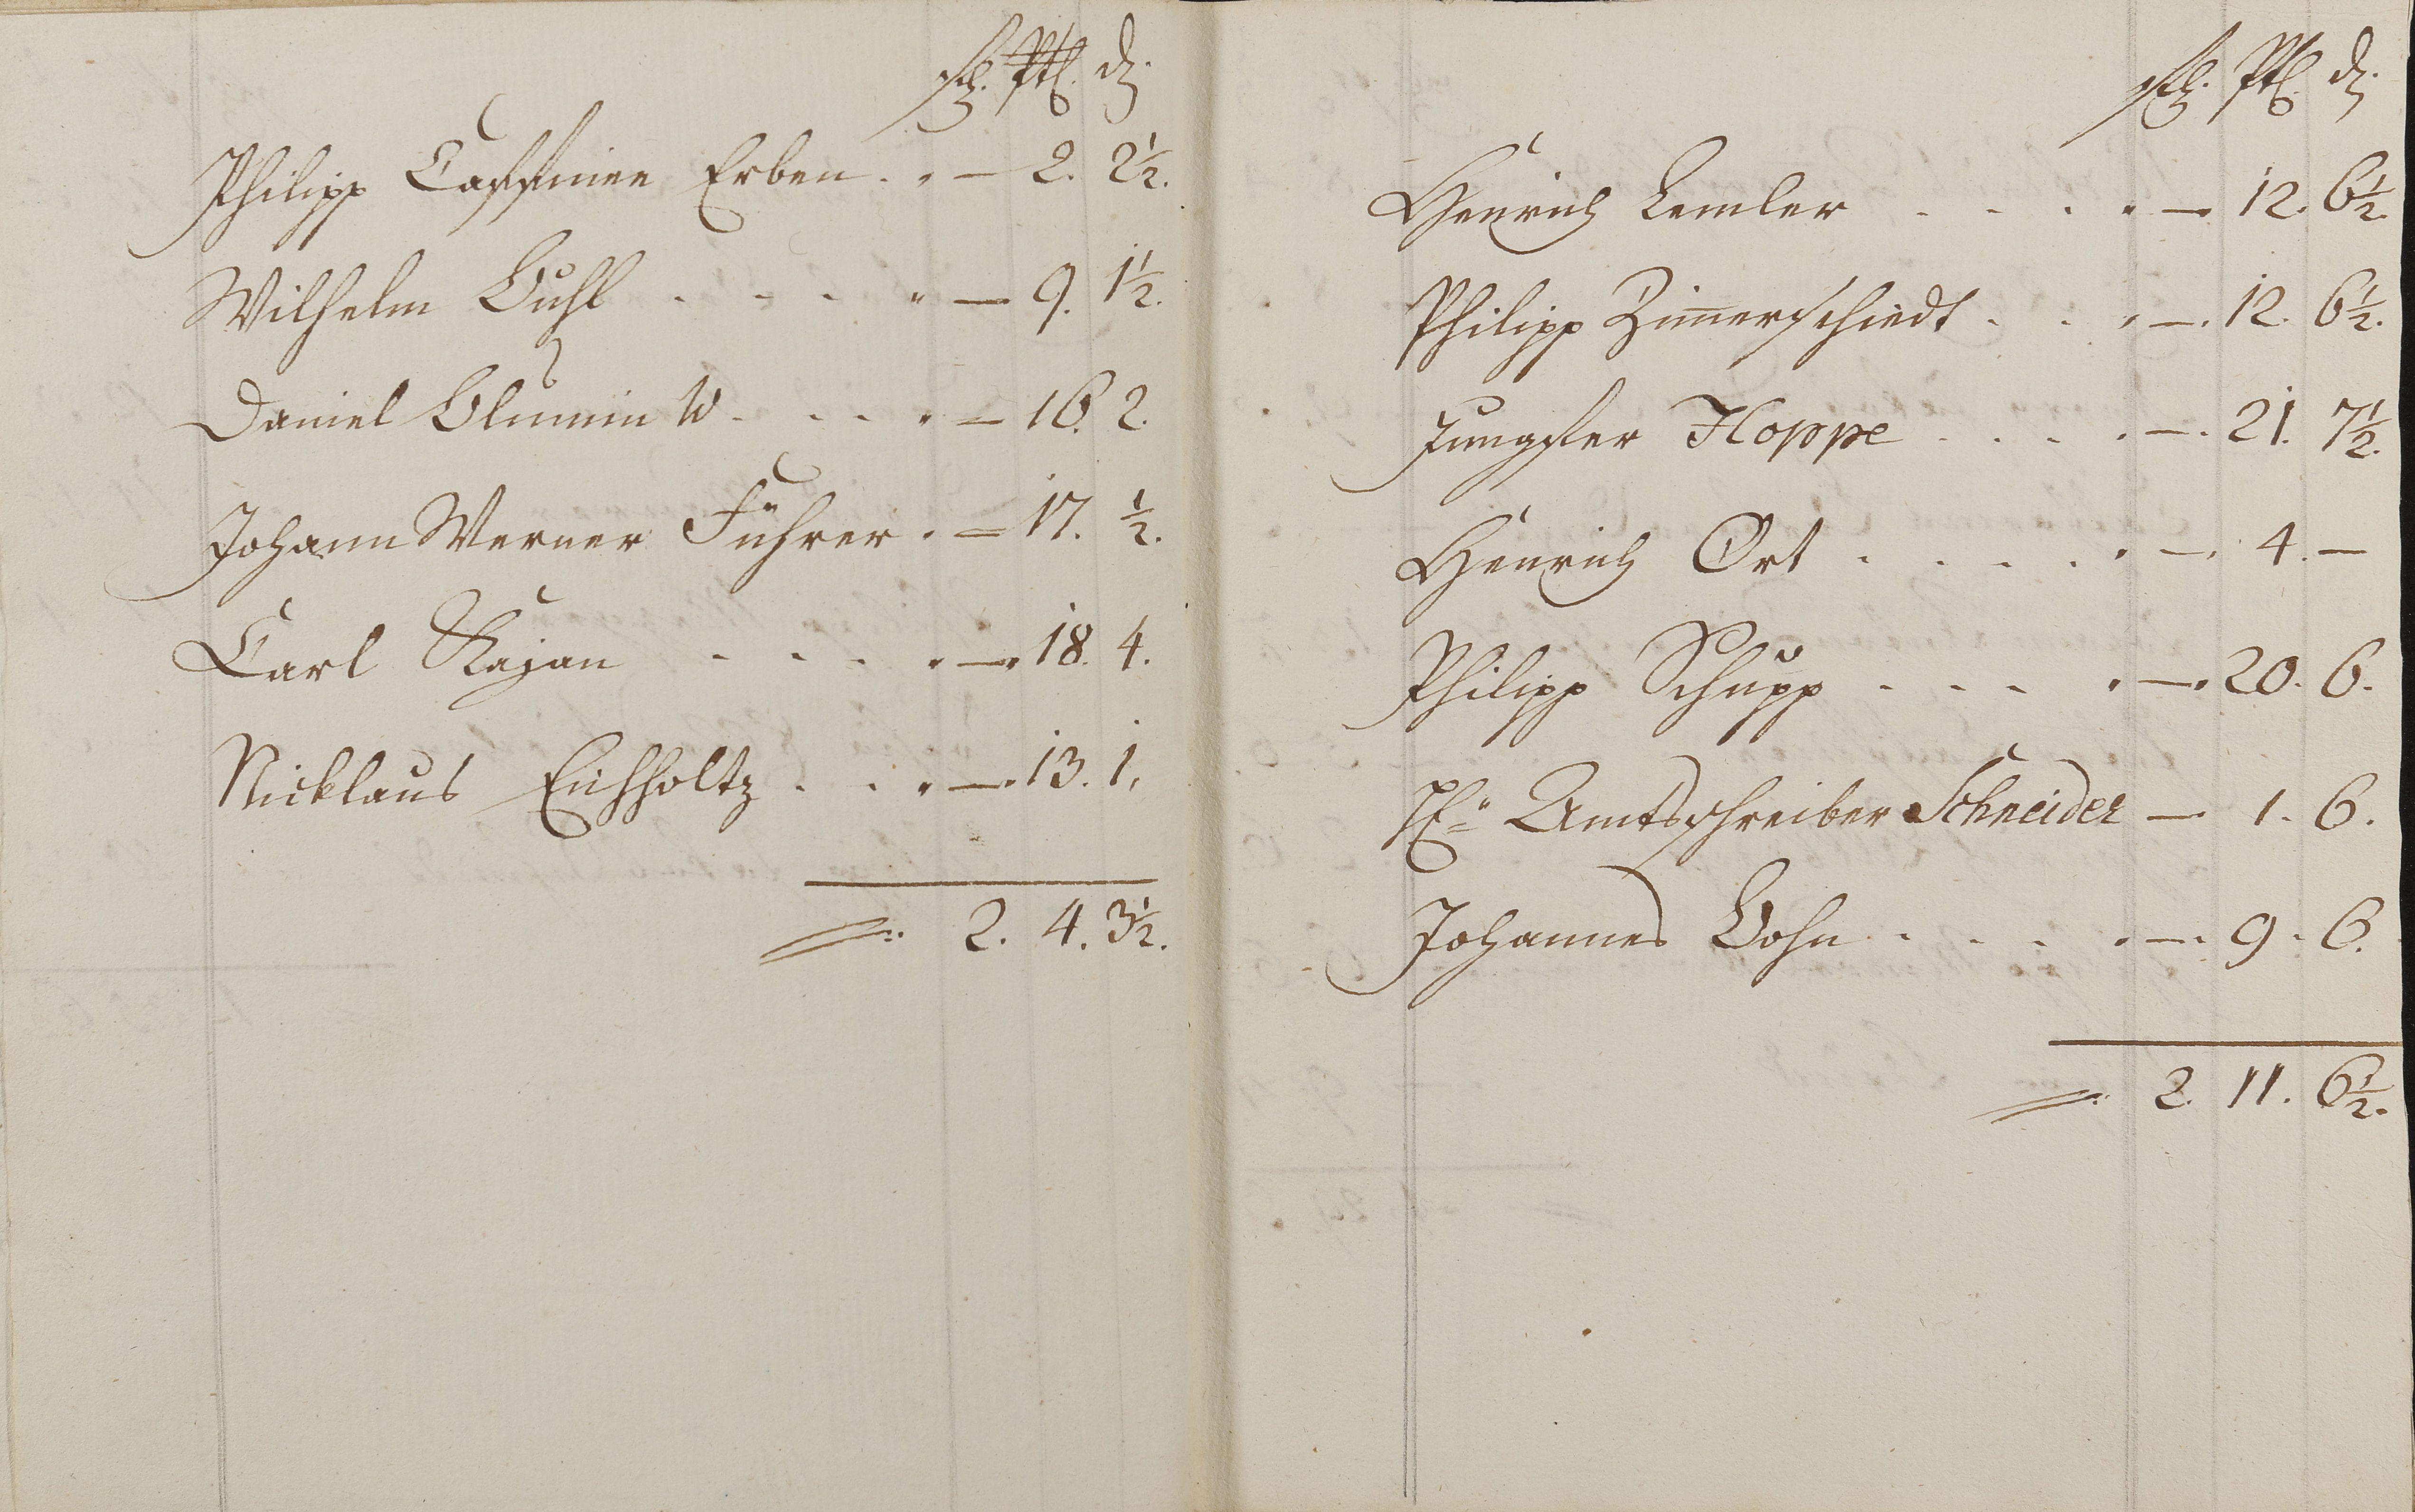 Philipp Erben . . — 2. 2½.
Wilhelm Buhl . . . . — 9. 1½.
Daniel W . . . . — 16. 2.
Johann Werner Führer . — 17. ½.
Carl Rajan . . . . — 18. 4.
Nicklaus Eichholtz . . . — 13. 1.
2. 4. 3½.
Henrich Lemler . . . . — 12. 6½.
Philipp Zimerschiedt . . . — 12. 6½.
Jungfer Hoppe . . . . — 21. 7½.
Henrich Ort . . . . . — 4. —
Philipp Schupp . . . . — 20. 6.
Amtsschreiber Schneider — 1. 6.
Johannes Bohn . . . . — 9. 6.
2. 11. 6½.